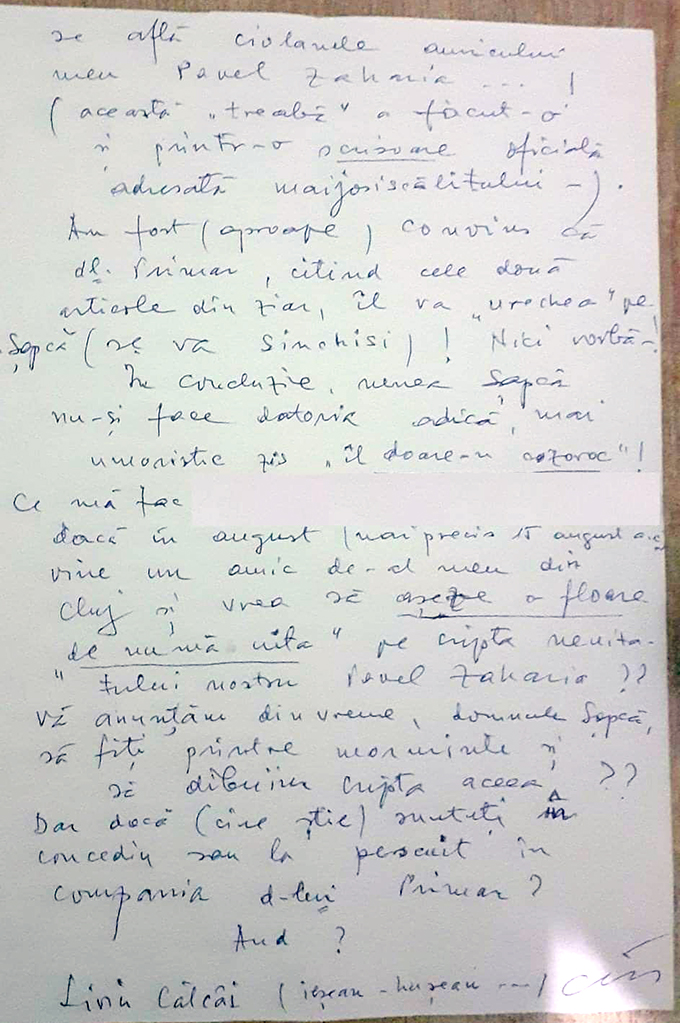 se află ciolanele amicului
meu Pavel Zaharia ... !
(această „treabă" a făcut-o
și printr-o scrisoare oficială
adresată maijosiscălitului -).
Am fost (aproape) convins că
dl. Primar, citind cele două
articole din ziar, îl va „urechea" pe
Șapcă (se va sinchisi)! Nici vorbă-!
În concluzie, nenea Șapcă
nu-și face datoria adică, mai
umoristic zis „îl doare-n cozoroc"!
Ce mă fac
dacă în august (mai precis 15 august a.c.
vine un amic de-al meu din
Cluj și vrea să așeze o floare
de nu mă uita" pe cripta neuita-
"tului nostru Pavel Zaharia ??
Vă anunțăm din vreme, domnule Șapcă,
să fiți printre morminte și
să dibuim cripta aceea ??
Dar dacă (cine știe) sunteți în
concediu sau la pescuit în
compania d-lui Primar?
Aud ?
Liviu Câlcâi (ieșean-hușean ...)